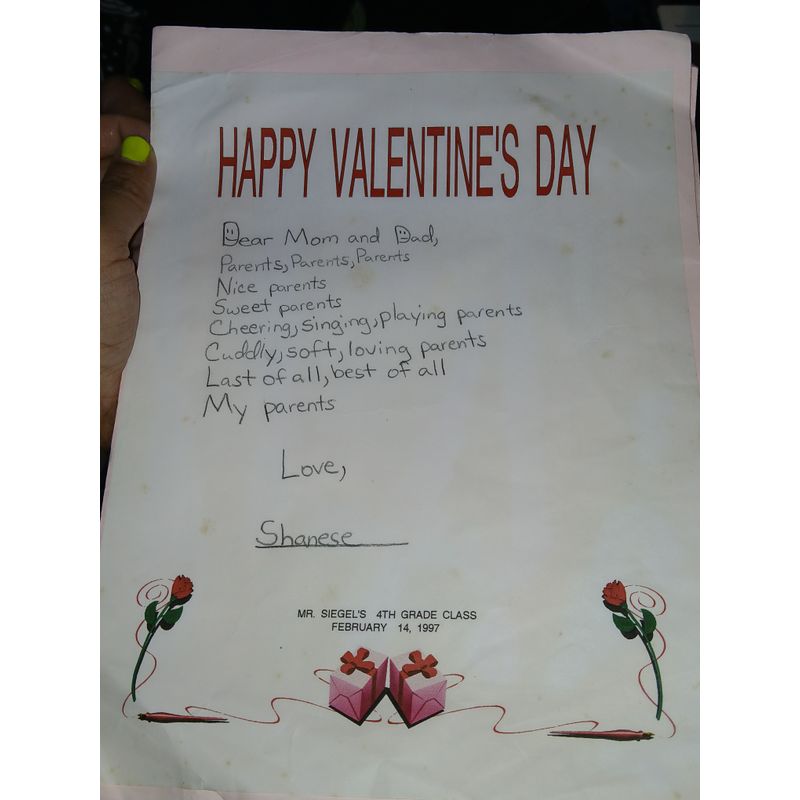 HAPPY VALENTINE'S DAY
Dear Mom and Dad,
Parents, Parents, Parents
Nice parents
Sweet parents
Cheering, singing, playing parents
Cuddly, soft, loving parents
Last of all, best of all
My parents
Love,
Shanese
MR. SIEGEL'S 4TH GRADE CLASS
FEBRUARY 14, 1997